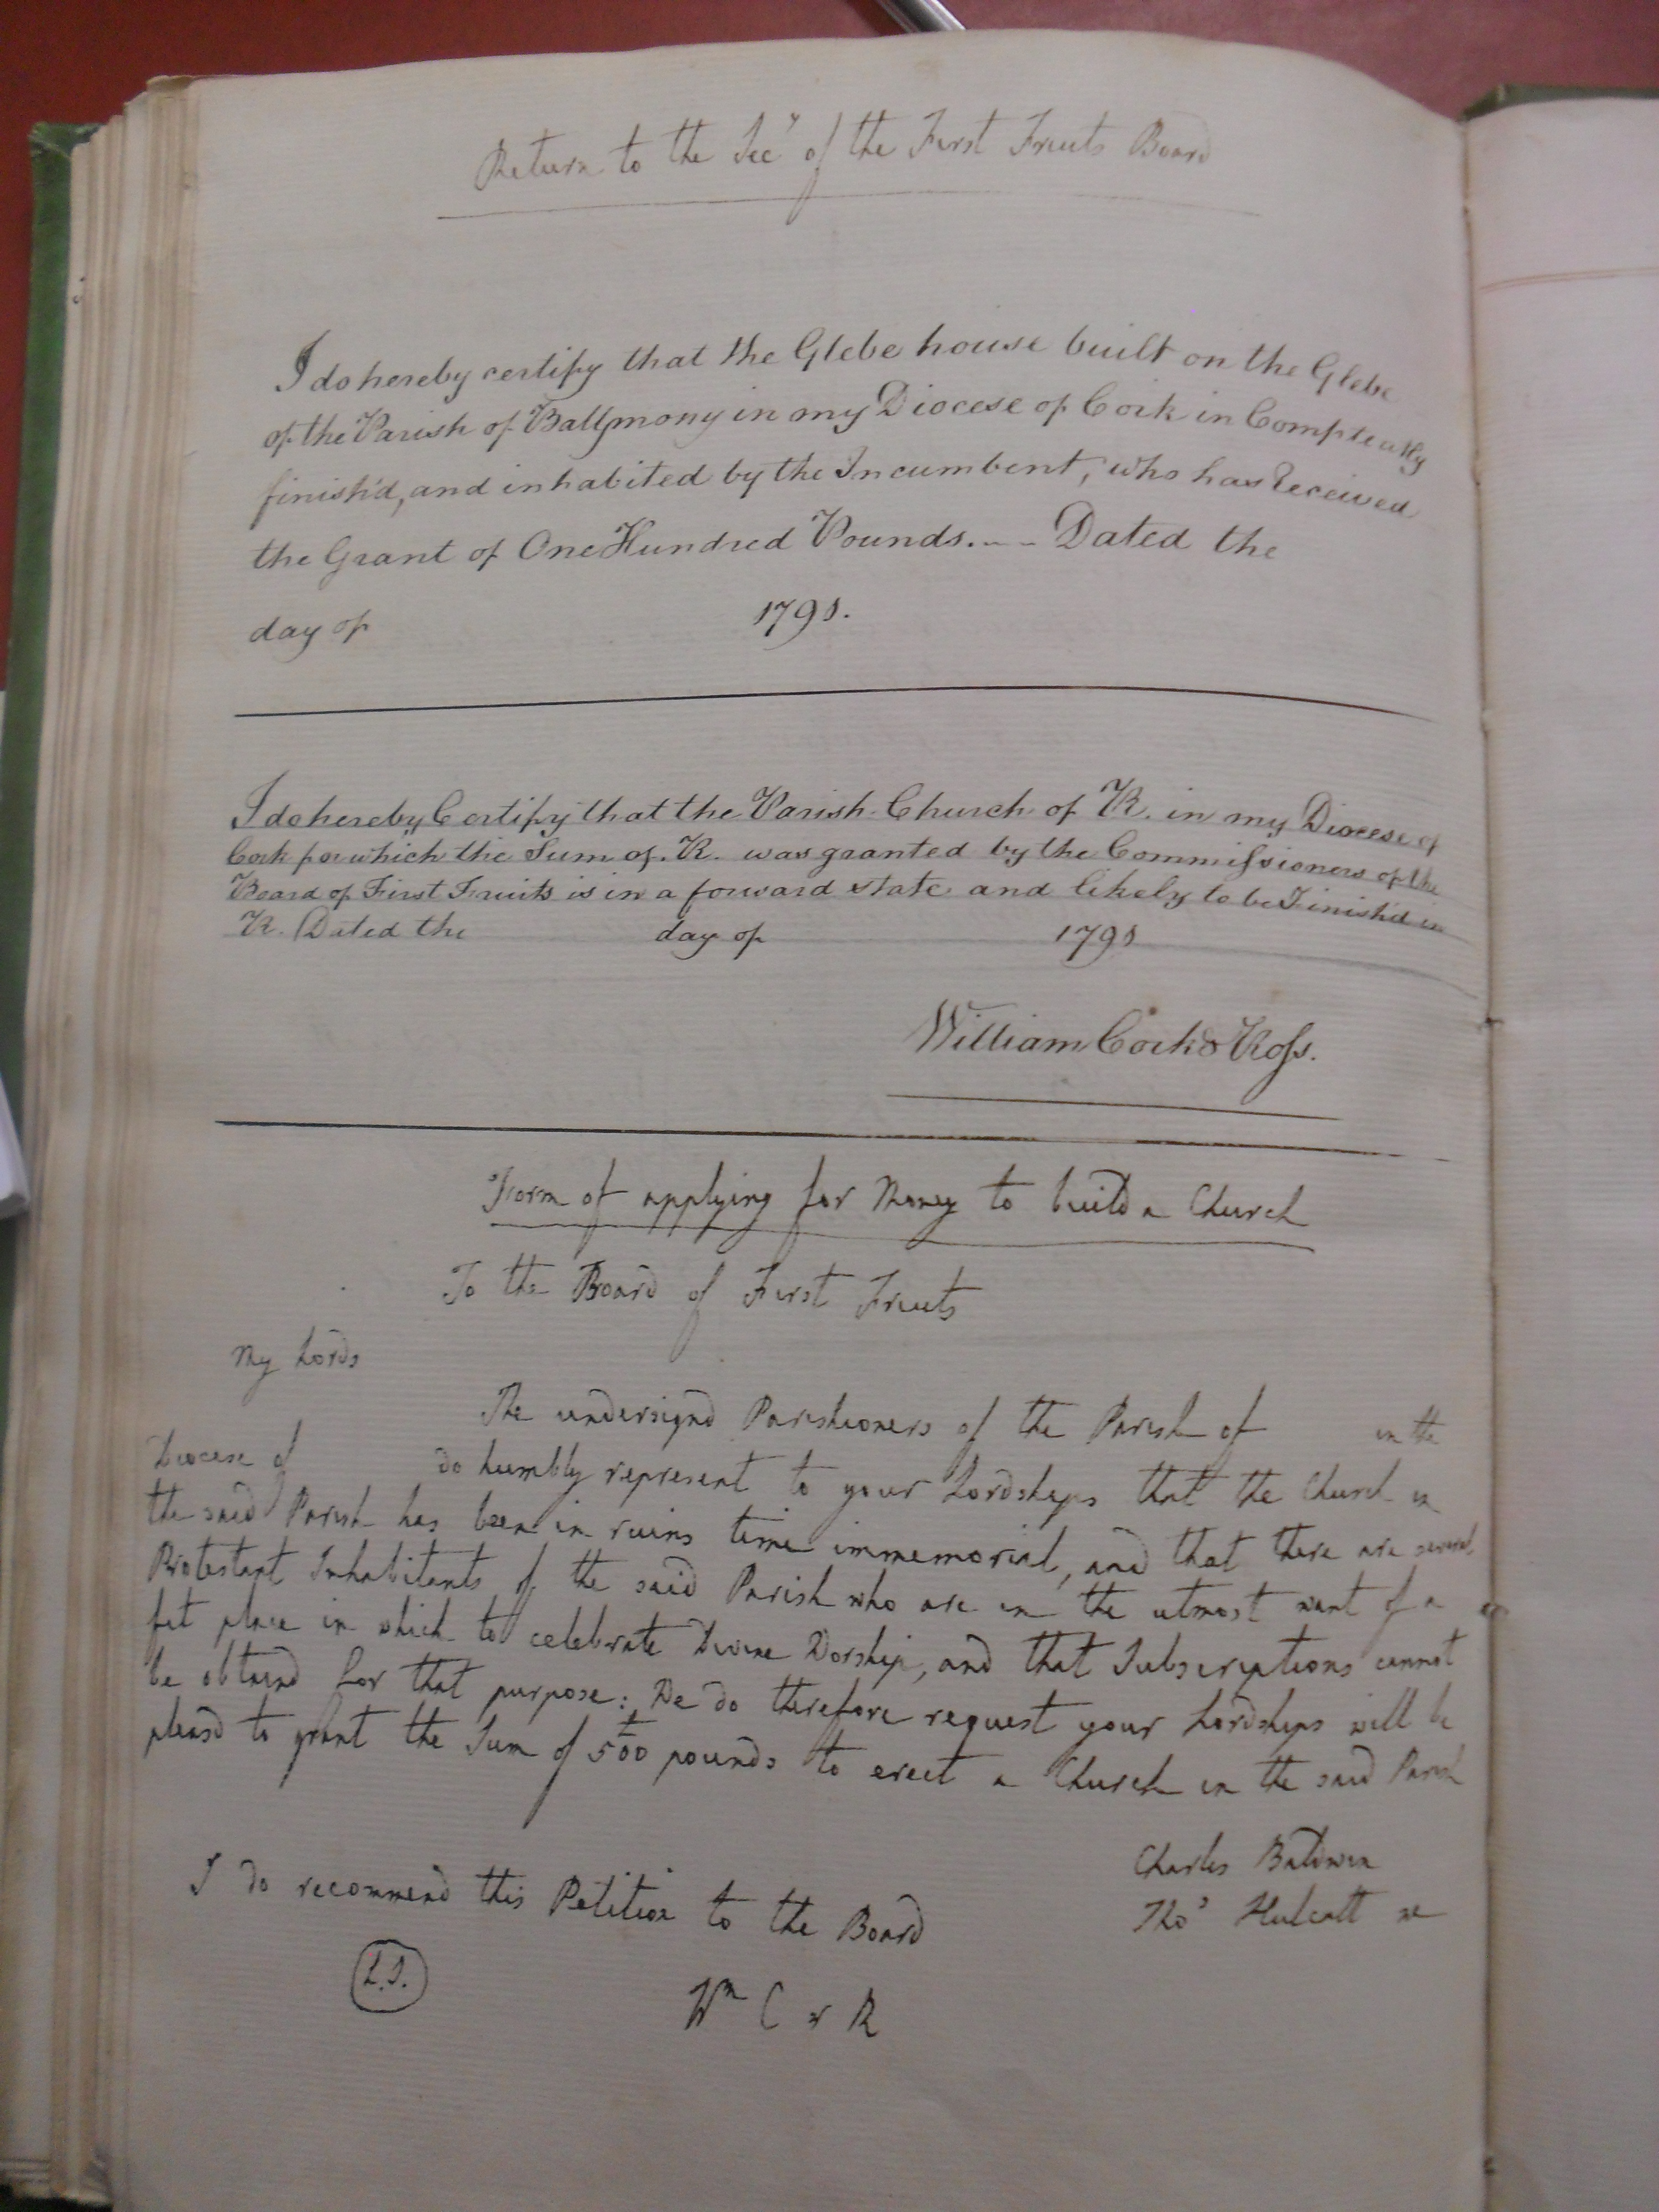 Return to the Secy of the First Fruits Board
I do hereby certify that the Glebe house built on the Glebe
of the Parish of Ballymony in my Diocese of Cork in Compleatly
finish'd, and inhabited by the Incumbent, who has Received
the Grant of One Hundred Pounds. - - Dated the
day of 1791.
I do hereby Certify that the Parish Church of R. in my Diocese of
Cork for which the Sum of. R. was granted by the Commissioners of the
Board of First Fruits is in a forward state and likely to be Finish'd in
R. Dated the day of 1791
William Cork & Ross.
Form of applying for Money to build a Church
To the Board of First Fruits
My Lords
The undersignd Parishioners of the Parish of in the
Diocese of do humbly represent to your Lordships that the Church in
the said Parish has been in ruins time immemorial, and that there are several
Protestant Inhabitants of the said Parish who are in the utmost want of a
fit place in which to celebrate Divine Worship, and that Subscriptions cannot
be obtaind for that purpose: We do therefore request your Lordships will be
pleasd to grant the Sum of 500 pounds to erect a Church in the said Parish
Charles Baldwin
Thos Hulcatt
I do recommend this Petition to the Board
L.S.
Wm C & R